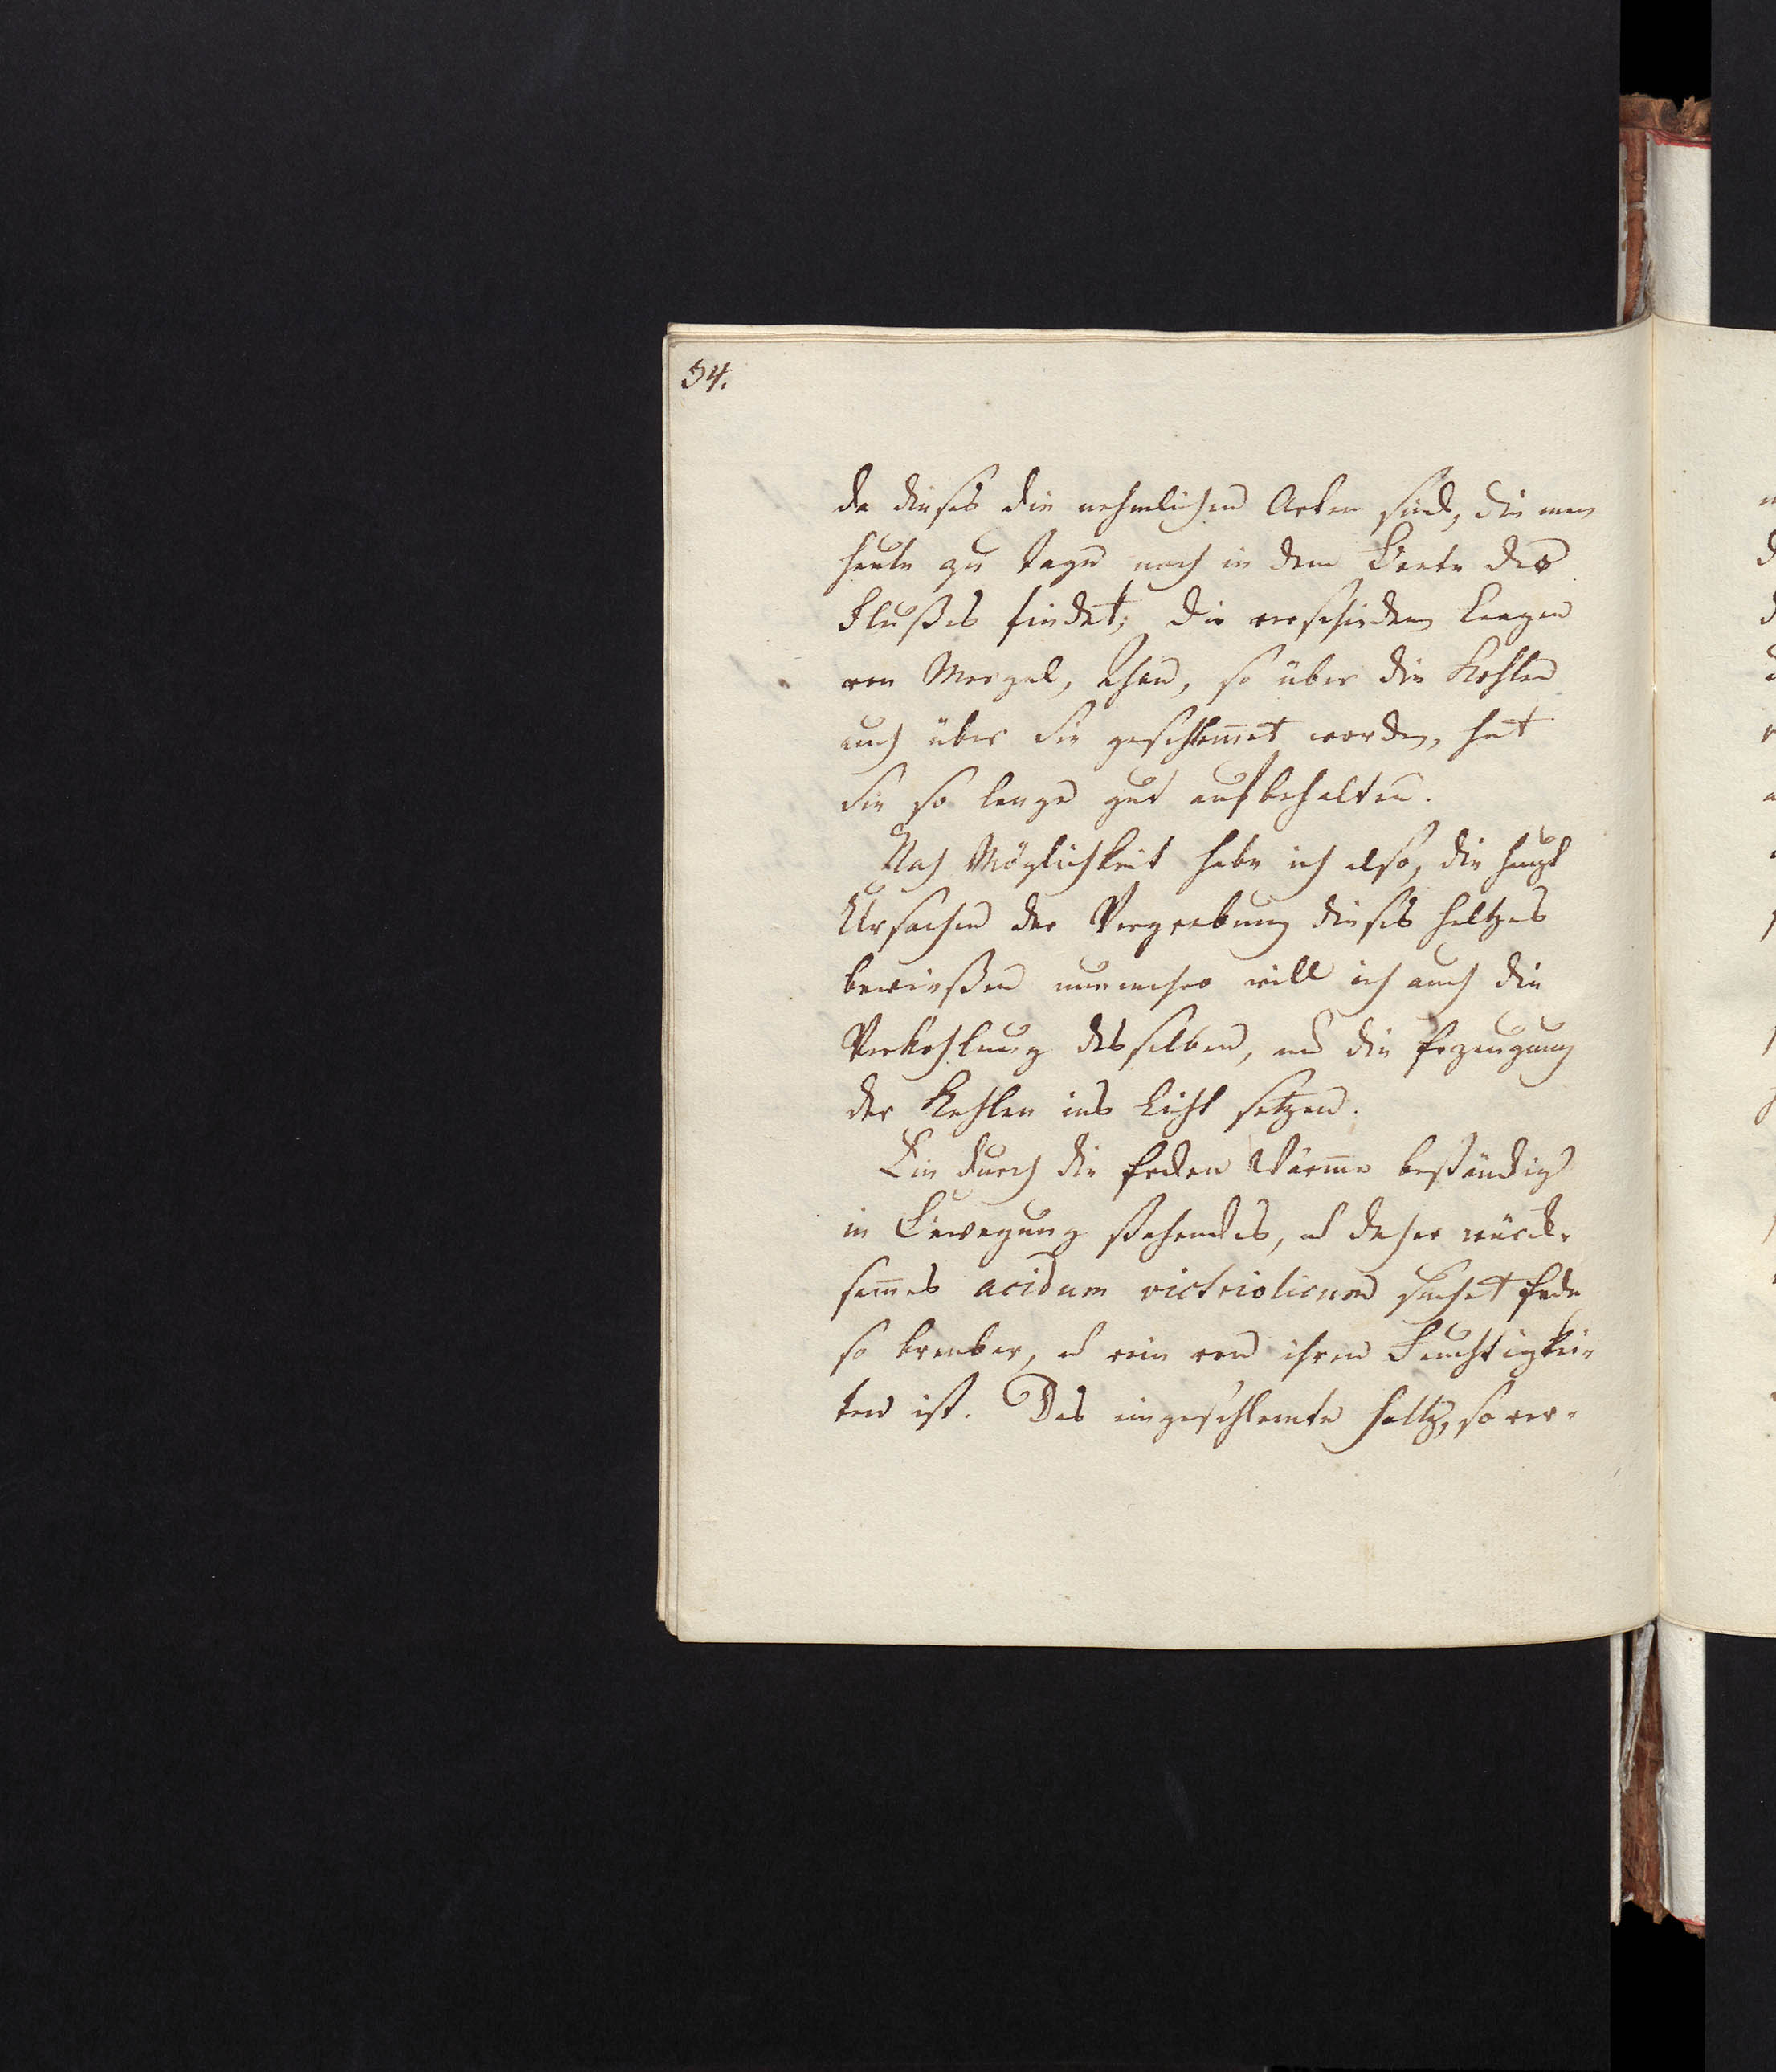 54.
da dieses die nehmlichen Arten sind, die man
heute zu tage noch in dem Beete des
Flußes findet; die verschieden Laagen
von Mergel, Than, so über die Kohlen
auch über sie geschlem̅et worden, hat
sie so lange gut aufbehalten.
Nach Möglichkeit habe ich also, die haupt
Ursachen der Vergrabung dieses holtzes
bewießen nunmehro will ich auch die
Verkohlung desselben, und die Erzeugung
der Kohlen ins Licht setzen.
Ein durch die Erden Wärme beständig
in Bewegung stehendes, u daher würck-
sam̅es acidum victriolicum suchet Erde
so brenbar, u rein von ihren Feuchtigkei-
ten ist. Das eingeschlemte holtz, so ver-